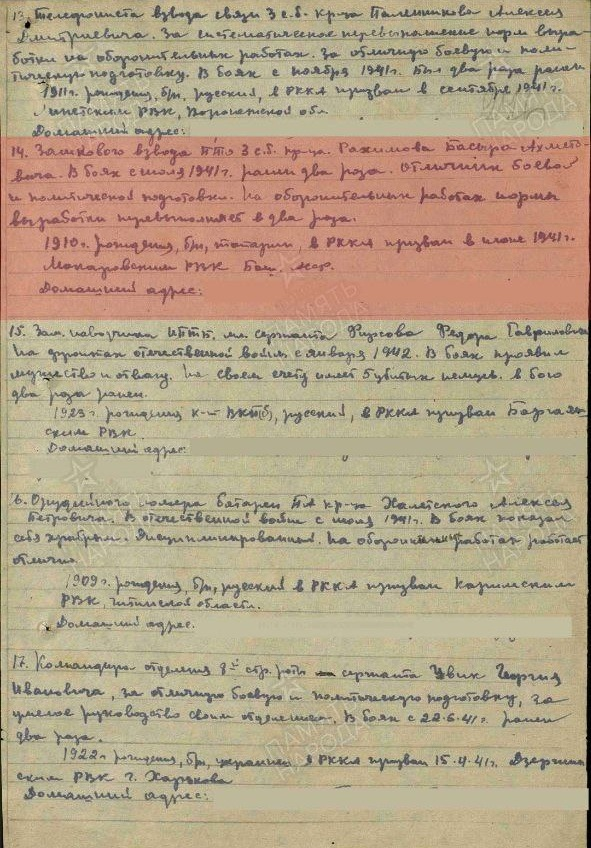 13. Телефониста взвода связи 3 с.б. кр-ца Паленникова Алексея
Дмитриевича. За систематическое перевыполнение норм выра-
ботки на оборонительных работах. За отличную боевую и поли-
тическую подготовку. В боях с ноября 1941 г. Был два раза ранен
1911 г. рождения, б/п, русский, в РККА призван в сентябре 1941 г.
РВК, Воронежской обл.
Домашний адрес:
14. взвода ПТО 3 с.б. кр-ца. Рахимова Басыра Ахмето-
вича. В боях с июля 1941 г. ранен два раза. Отличник боевой
и политической подготовки. На оборонительных работах нормы
выработки перевыполняет в два раза.
1910 г. рождения, б/п, татарин, в РККА призван в июне 1941 г.
Макаровским РВК Баш.
Домашний адрес:
15. Зам. наводчика мл. сержанта Фирсова Федора Гавриловича
На фронтах отечественной войны с января 1942. В боях проявил
мужество и отвагу. На своем счету имеет убитых немцев. в бою
два раза ранен.
1923 г. рождения к-т ВКП(б), русский, в РККА призван
ским РВК
Домашний адрес
16. Орудийного номера батареи ПА кр-ца Халетского Алексея
Петровича. В отечественной войне с июля 1941 г. В боях показал
себя храбрым. Дисциплинированный. На оборонительных работах работает
отлично
1909 г. рождения, б/п, русский в РККА призван Карымским
РВК, Читинской области.
Домашний адрес.
17. Командира отделения 8й стр. роты сержанта Цвик Георгия
Ивановича, за отличную боевую и политическую подготовку, за
умелое руководство своим отделением. В боях с 22.6.41 г. ранен
два раза.
1922 г. рождения, б/п, украинец в РККА призван 15.4.41 г. Дзержин
ским РВК г. Харькова
Домашний адрес:
ПАМЯТЬ
НАРОДА